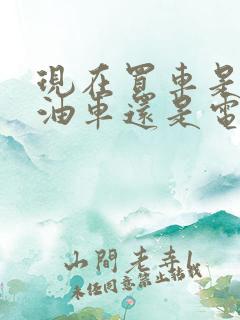 現在買車是
油車還是電
山間老幸
未任同意禁止轉載